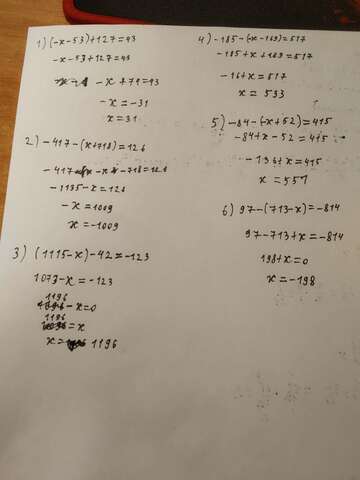 1) (-x-53)+127=43
-x-53+127=43
-x+74=43
-x=-31
x=31
2) -417-(x+718)=126
-417-x-718=126
-1135-x=126
-x=1009
x=-1009
3) (1115-x)-42=-123
1073-x=-123
1196
-x=0
1196
=x
x= 1196
4) -185-(-x-169)=517
-185+x+169=517
-16+x=517
x=533
5) -84-(-x+52)=415
-84+x-52=415
-136+x=415
x=551
6) 97-(713-x)=-814
97-713+x=-814
198+x=0
x=-198